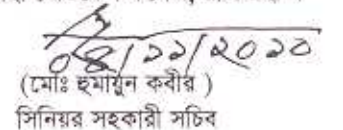 ০৪/১১/২০১০
(মোঃ হুমায়ুন কবীর )
সিনিয়র সহকারী সচিব